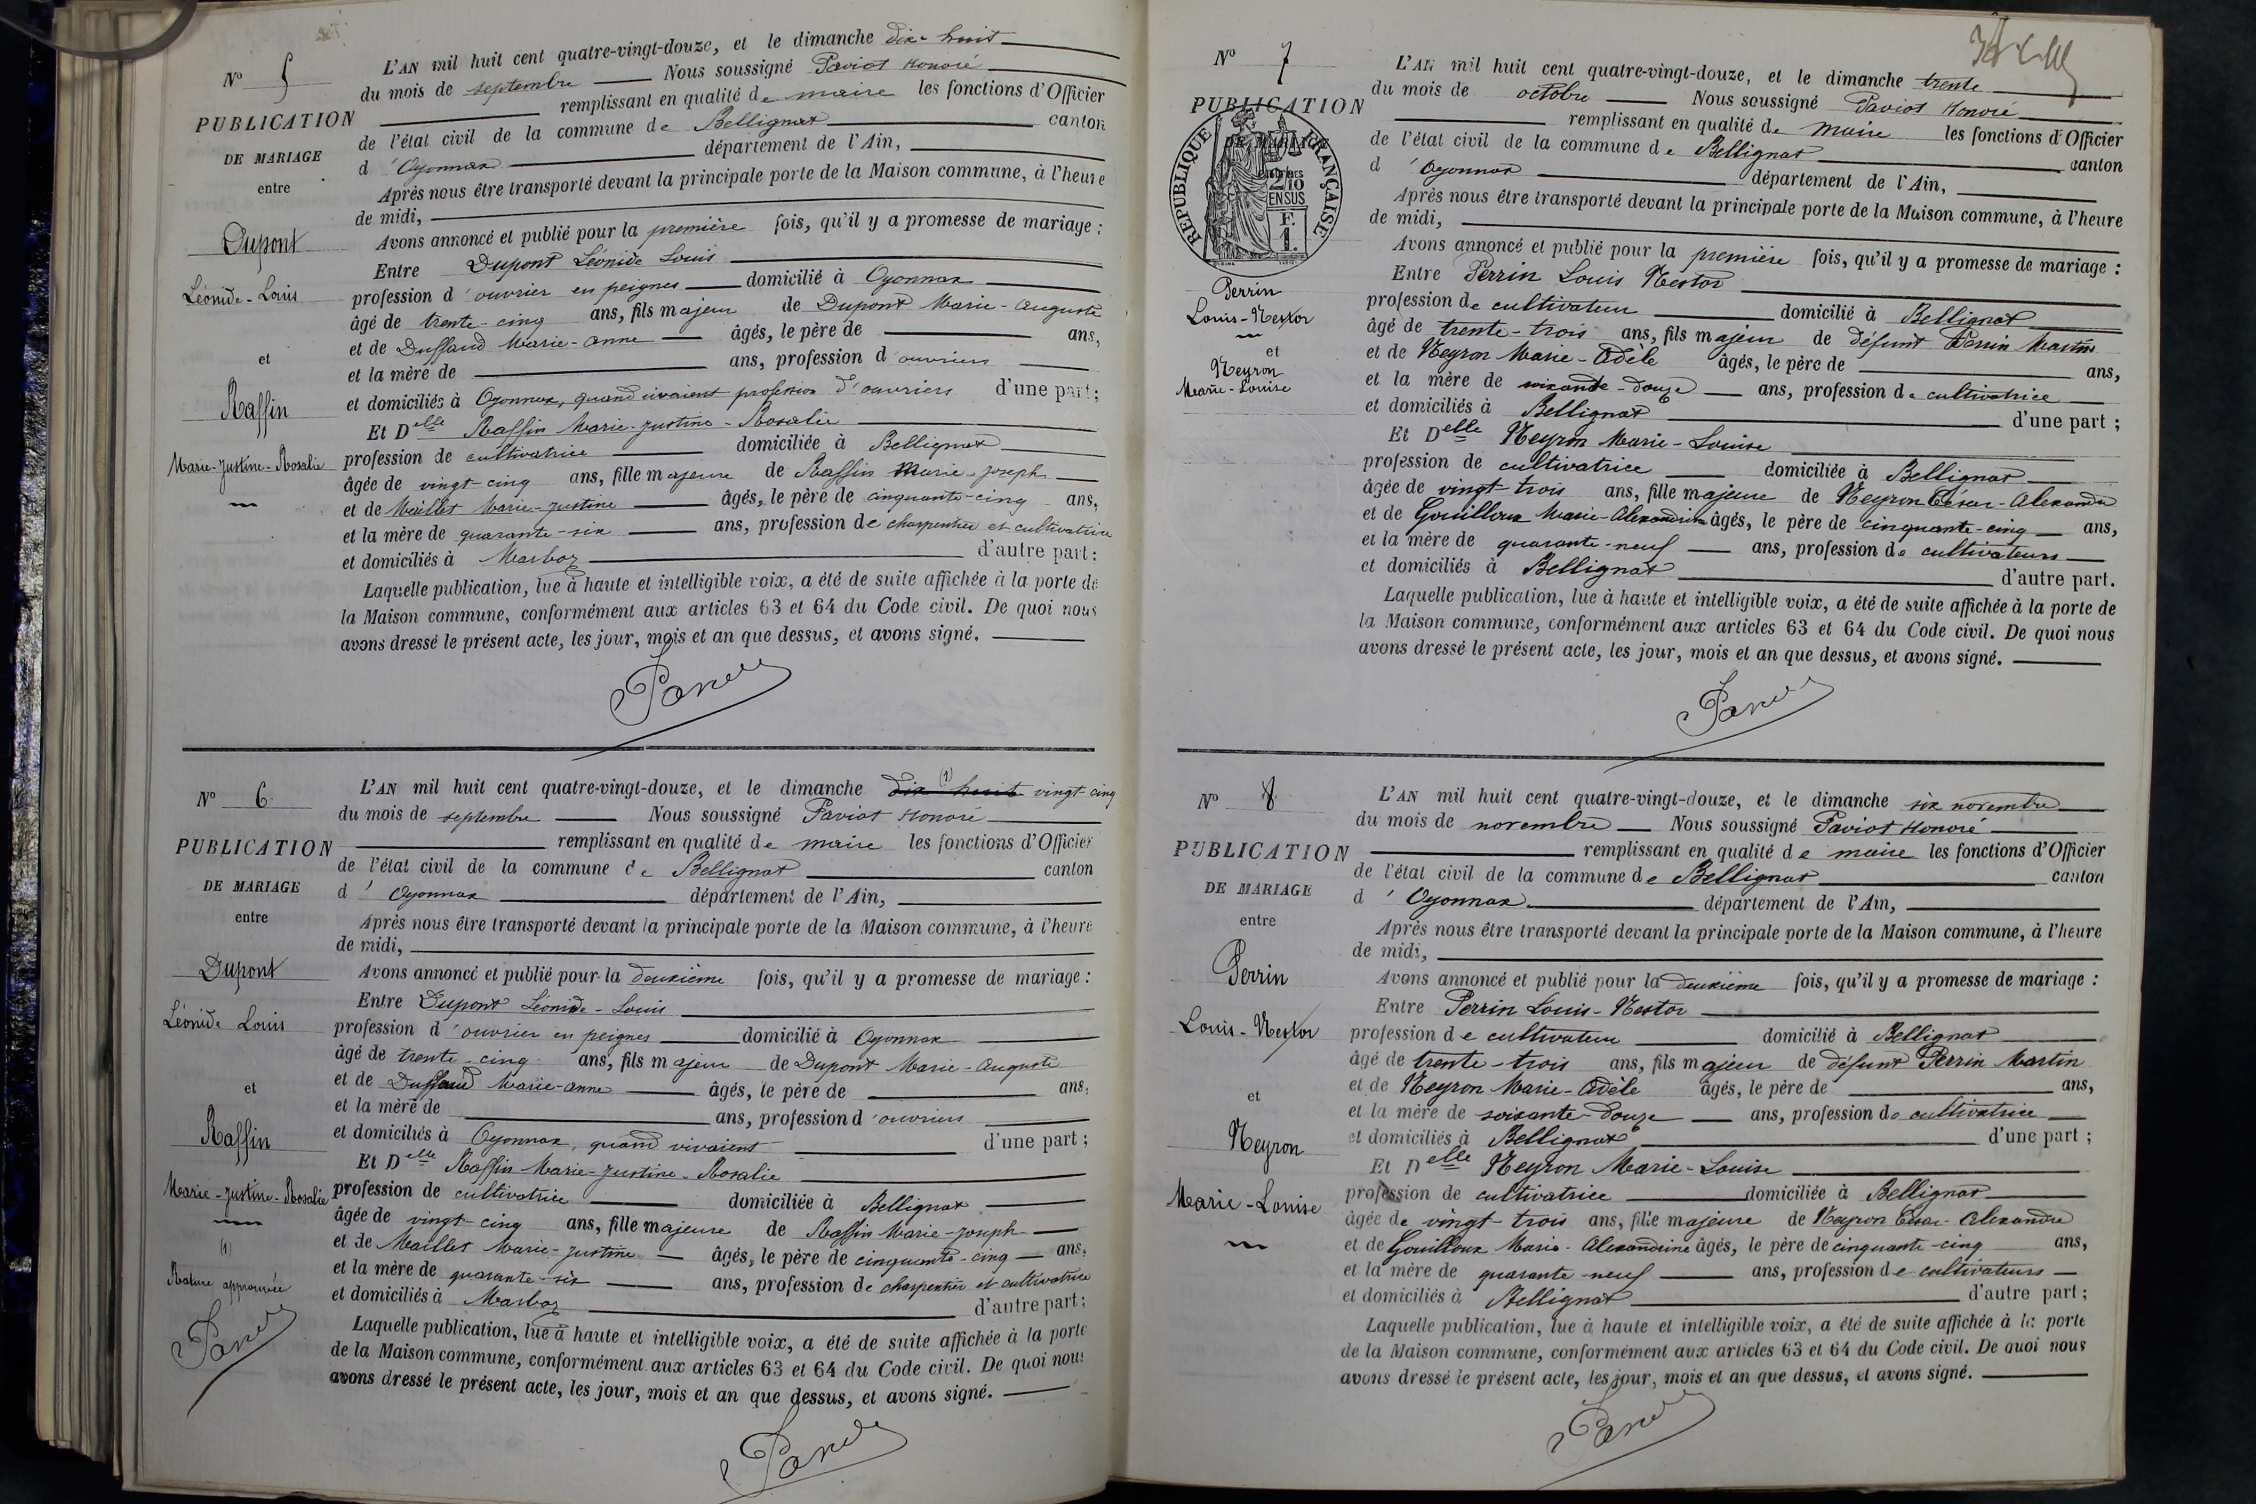 N° 5
PUBLICATION
DE MARIAGE
entre
Dupont
Léonide-Louis
et
Raffin
Marie-Justine-Rosalie
L'AN mil huit cent quatre-vingt-douze, et le dimanche dix-huit
du mois de septembre Nous soussigné Paviot Honoré
remplissant en qualité de maire les fonctions d'Officier
de l'état civil de la commune de Bellignat canton
d'Oyonnax département de l'Ain,
Après nous être transporté devant la principale porte de la Maison commune, à l'heure
de midi,
Avons annoncé et publié pour la première fois, qu'il y a promesse de mariage :
Entre Dupont Léonide Louis
profession d'ouvrier en peignes domicilié à Oyonnax
âgé de trente-cinq ans, fils majeur de Dupont Marie-Auguste
et de Duffaud Marie-Anne âgés, le père de ans,
et la mère de ans, profession d'ouvriers
et domiciliés à Oyonnax, quand vivaient profession d'ouvriers d'une part ;
Et Delle Raffin Marie-Justine-Rosalie
profession de cultivatrice domiciliée à Bellignat
âgée de vingt-cinq ans, fille majeure de Raffin Marie-Joseph
et de Maillet Marie-Justine âgés, le père de cinquante-cinq ans,
et la mère de quarante-six ans, profession de charpentier et cultivatrice
et domiciliés à Marboz d'autre part :
Laquelle publication, lue à haute et intelligible voix, a été de suite affichée à la porte de
la Maison commune, conformément aux articles 63 et 64 du Code civil. De quoi nous
avons dressé le présent acte, les jour, mois et an que dessus, et avons signé.
Paviot
N° 6
PUBLICATION
DE MARIAGE
entre
Dupont
Léonide Louis
et
Raffin
Marie-Justine-Rosalie
(1)
Rature approuvée
Paviot
L'AN mil huit cent quatre-vingt-douze, et le dimanche dix huit (1) vingt cinq
du mois de septembre Nous soussigné Paviot Honoré
remplissant en qualité de maire les fonctions d'Officier
de l'état civil de la commune de Bellignat canton
d'Oyonnax département de l'Ain,
Après nous être transporté devant la principale porte de la Maison commune, à l'heure
de midi,
Avons annoncé et publié pour la deuxième fois, qu'il y a promesse de mariage :
Entre Dupont Léonide-Louis
profession d'ouvrier en peignes domicilié à Oyonnax
âgé de trente-cinq ans, fils majeur de Dupont Marie-Auguste
et de Duffaud Marie-Anne âgés, le père de ans,
et la mère de ans, profession d'ouvriers
et domiciliés à Oyonnax, quand vivaient d'une part ;
Et Delle Raffin Marie-Justine-Rosalie
profession de cultivatrice domiciliée à Bellignat
âgée de vingt-cinq ans, fille majeure de Raffin Marie-Joseph
et de Maillet Marie-Justine âgés, le père de cinquante-cinq ans,
et la mère de quarante-six ans, profession de charpentier et cultivatrice
et domiciliés à Marboz d'autre part ;
Laquelle publication, lue à haute et intelligible voix, a été de suite affichée à la porte
de la Maison commune, conformément aux articles 63 et 64 du Code civil. De quoi nous
avons dressé le présent acte, les jour, mois et an que dessus, et avons signé.
Paviot
N° 7
PUBLICATION
DE MARIAGE
RÉPUBLIQUE FRANÇAISE
2/10 EN SUS
F.
1.
Perrin
Louis-Nestor
et
Neyron
Marie-Louise
L'AN mil huit cent quatre-vingt-douze, et le dimanche trente
du mois de octobre Nous soussigné Paviot Honoré
remplissant en qualité de maire les fonctions d'Officier
de l'état civil de la commune de Bellignat canton
d'Oyonnax département de l'Ain,
Après nous être transporté devant la principale porte de la Maison commune, à l'heure
de midi,
Avons annoncé et publié pour la première fois, qu'il y a promesse de mariage :
Entre Perrin Louis Nestor
profession de cultivateur domicilié à Bellignat
âgé de trente-trois ans, fils majeur de défunt Perrin Martin
et de Neyron Marie-Adèle âgés, le père de ans,
et la mère de soixante-douze ans, profession de cultivatrice
et domiciliés à Bellignat d'une part ;
Et Delle Neyron Marie-Louise
profession de cultivatrice domiciliée à Bellignat
âgée de vingt-trois ans, fille majeure de Neyron César-Alexandre
et de Gouilloux Marie-Alexandrine âgés, le père de cinquante-cinq ans,
et la mère de quarante-neuf ans, profession de cultivateurs
et domiciliés à Bellignat d'autre part.
Laquelle publication, lue à haute et intelligible voix, a été de suite affichée à la porte de
la Maison commune, conformément aux articles 63 et 64 du Code civil. De quoi nous
avons dressé le présent acte, les jour, mois et an que dessus, et avons signé.
Paviot
N° 8
PUBLICATION
DE MARIAGE
entre
Perrin
Louis-Nestor
et
Neyron
Marie-Louise
L'AN mil huit cent quatre-vingt-douze, et le dimanche six novembre
du mois de novembre Nous soussigné Paviot Honoré
remplissant en qualité de maire les fonctions d'Officier
de l'état civil de la commune de Bellignat canton
d'Oyonnax département de l'Ain,
Après nous être transporté devant la principale porte de la Maison commune, à l'heure
de midi,
Avons annoncé et publié pour la deuxième fois, qu'il y a promesse de mariage :
Entre Perrin Louis-Nestor
profession de cultivateur domicilié à Bellignat
âgé de trente-trois ans, fils majeur de défunt Perrin Martin
et de Neyron Marie-Adèle âgés, le père de ans,
et la mère de soixante-douze ans, profession de cultivatrice
et domiciliés à Bellignat d'une part ;
Et Delle Neyron Marie-Louise
profession de cultivatrice domiciliée à Bellignat
âgée de vingt-trois ans, fille majeure de Neyron César-Alexandre
et de Gouilloux Marie-Alexandrine âgés, le père de cinquante-cinq ans,
et la mère de quarante-neuf ans, profession de cultivateurs
et domiciliés à Bellignat d'autre part ;
Laquelle publication, lue à haute et intelligible voix, a été de suite affichée à la porte
de la Maison commune, conformément aux articles 63 et 64 du Code civil. De quoi nous
avons dressé le présent acte, les jour, mois et an que dessus, et avons signé.
Paviot